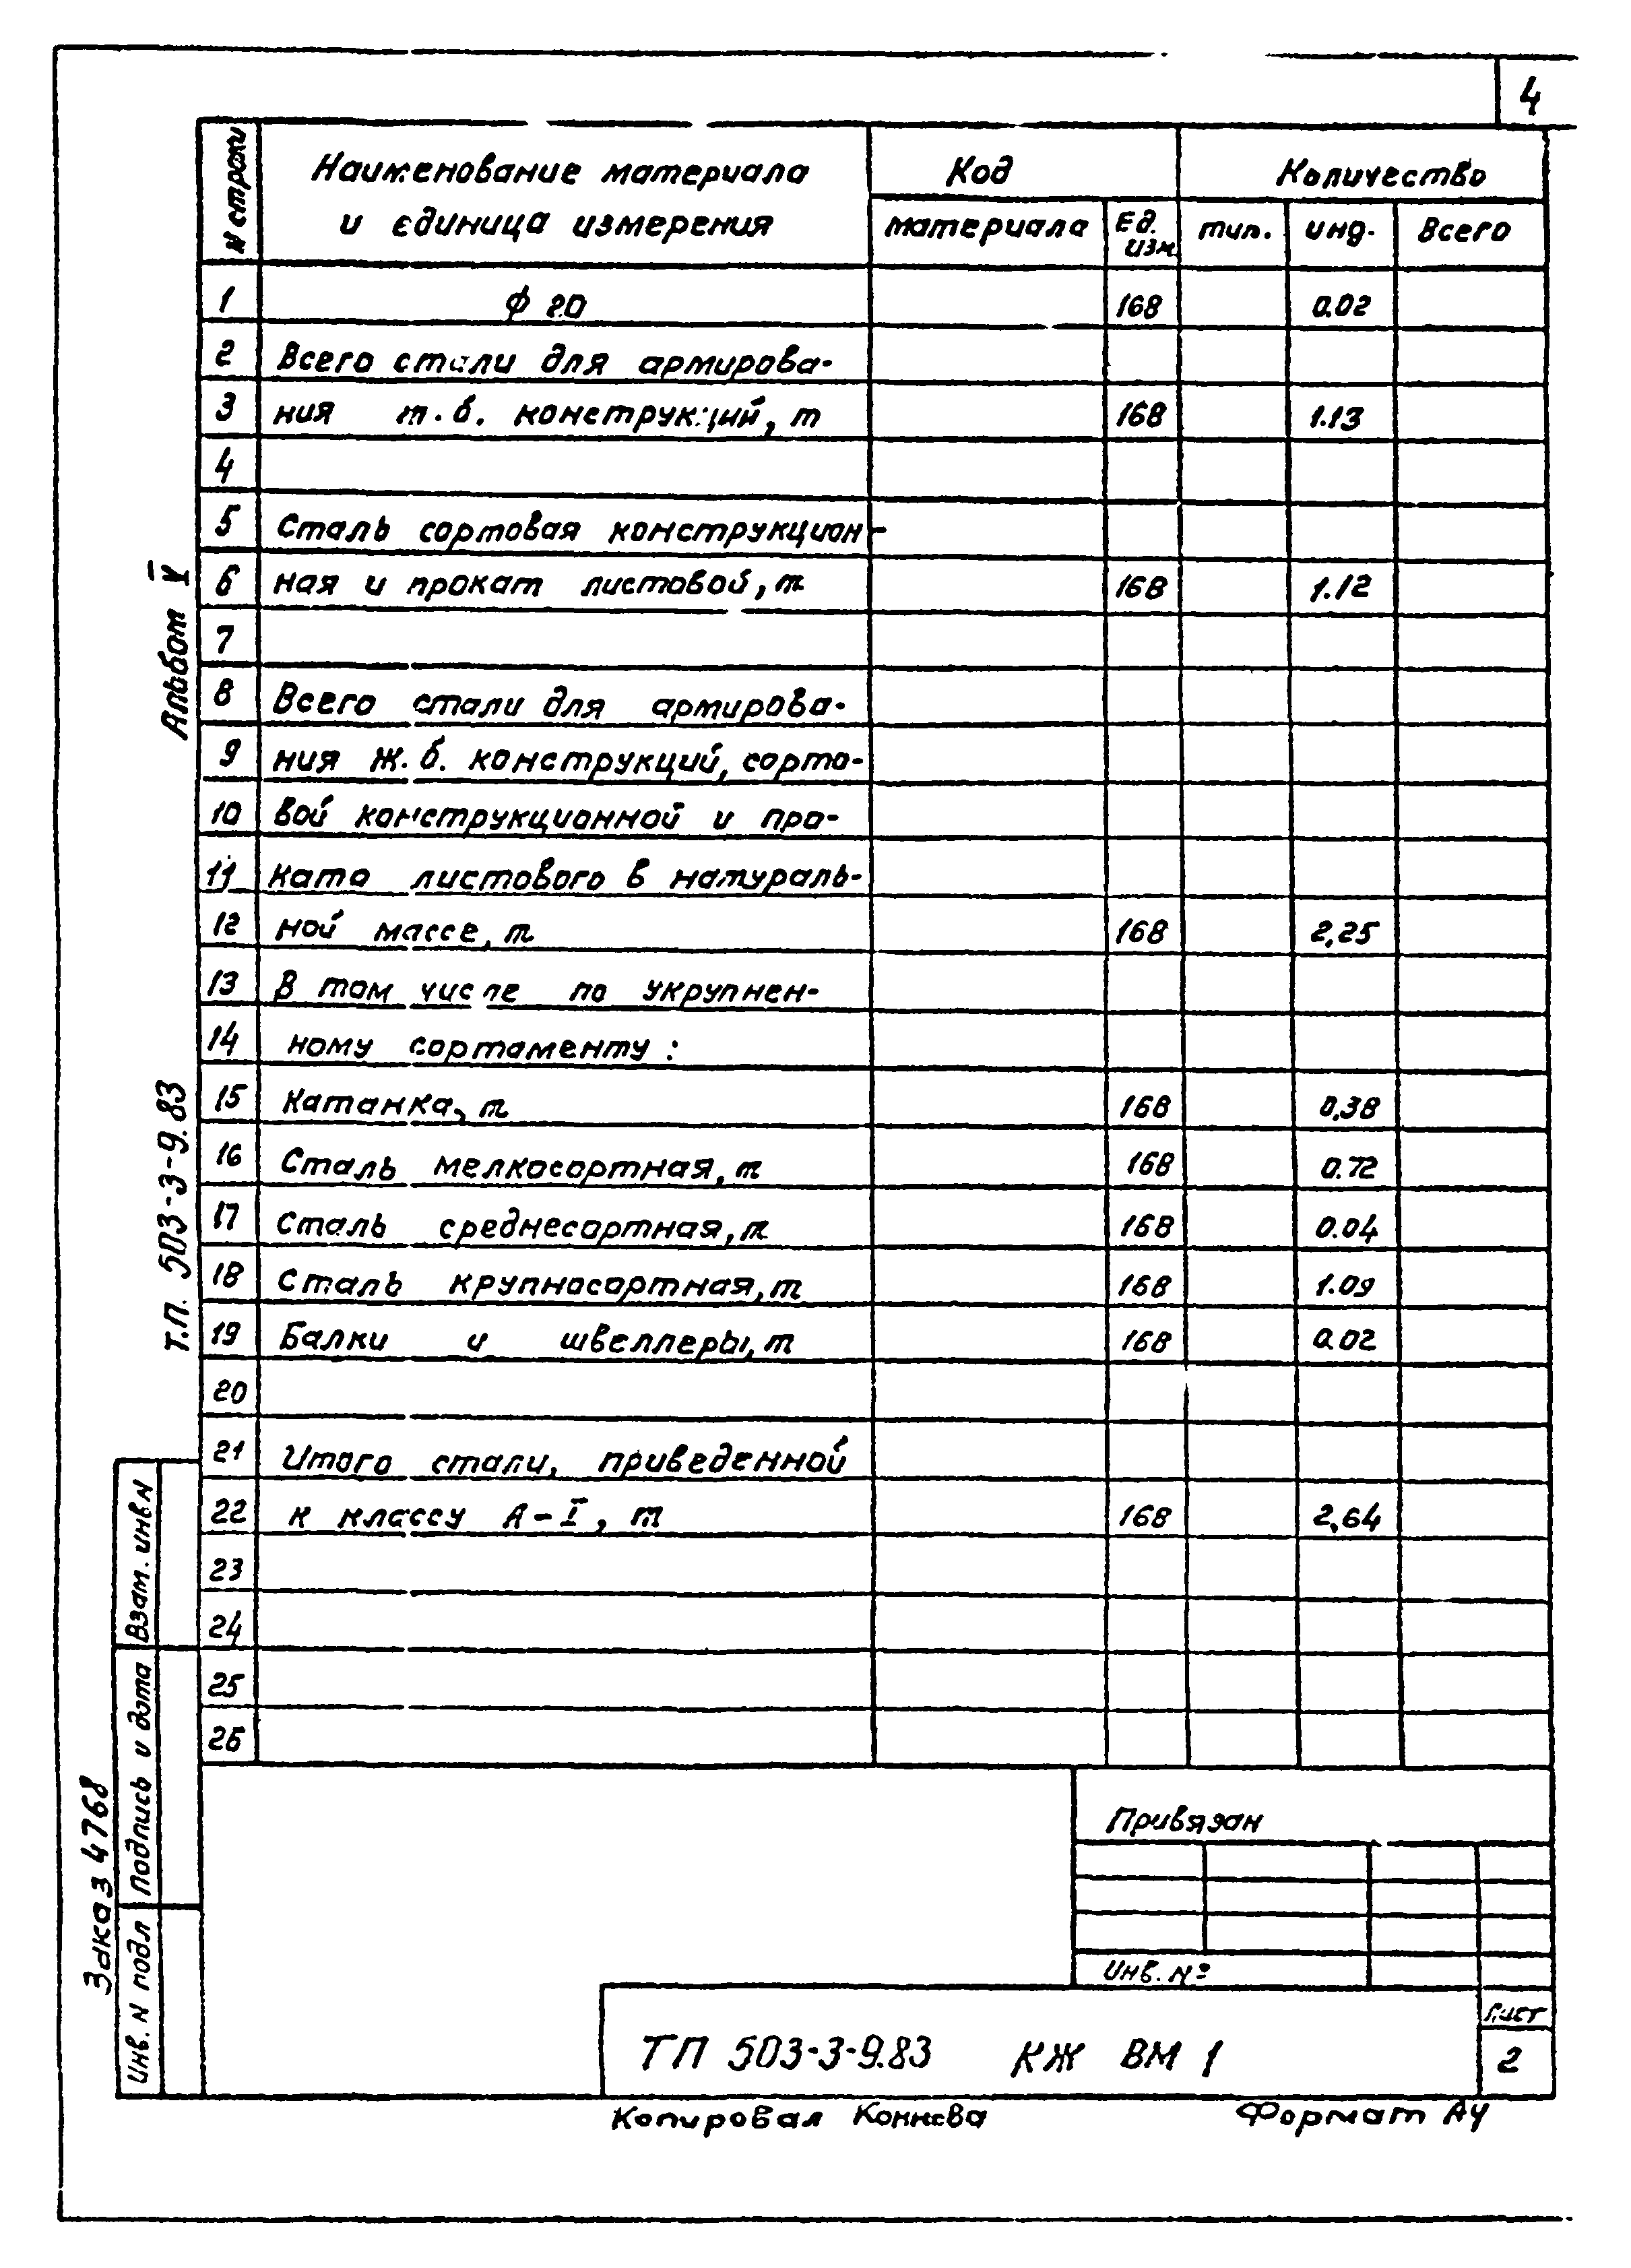 4
N строки
Наименование материала
и единица измерения
Код
Количество
материала
Ед. изм
тип.
инд.
Всего
1 ф 20 168 0.02
2 Всего стали для армирова-
3 ния т.б. конструкций, т 168 1.13
4
5 Сталь сортовая конструкцион-
6 ная и прокат листовой, т 168 1.12
7
8 Всего стали для армирова-
9 ния ж.б. конструкций, сорто-
10 вой конструкционной и про-
11 ката листового в натураль-
12 ной массе, т 168 2,25
13 В том числе по укрупнен-
14 ному сортаменту:
15 Катанка, т 168 0,38
16 Сталь мелкосортная, т 168 0.72
17 Сталь среднесортная, т 168 0.04
18 Сталь крупносортная, т 168 1.09
19 Балки и швеллеры, т 168 0.02
20
21 Итого стали, приведенной
22 к классу А-I, т 168 2,64
23
24
25
26
Альбом V
т.п. 503-3-9.83
Взам. инв N
Подпись и дата
Инв. N подл
Заказ 4768
Привязан
Инв. №
ТП 503-3-9.83 КЖ ВМ 1
Лист
2
Копировал Коннева
Формат А4